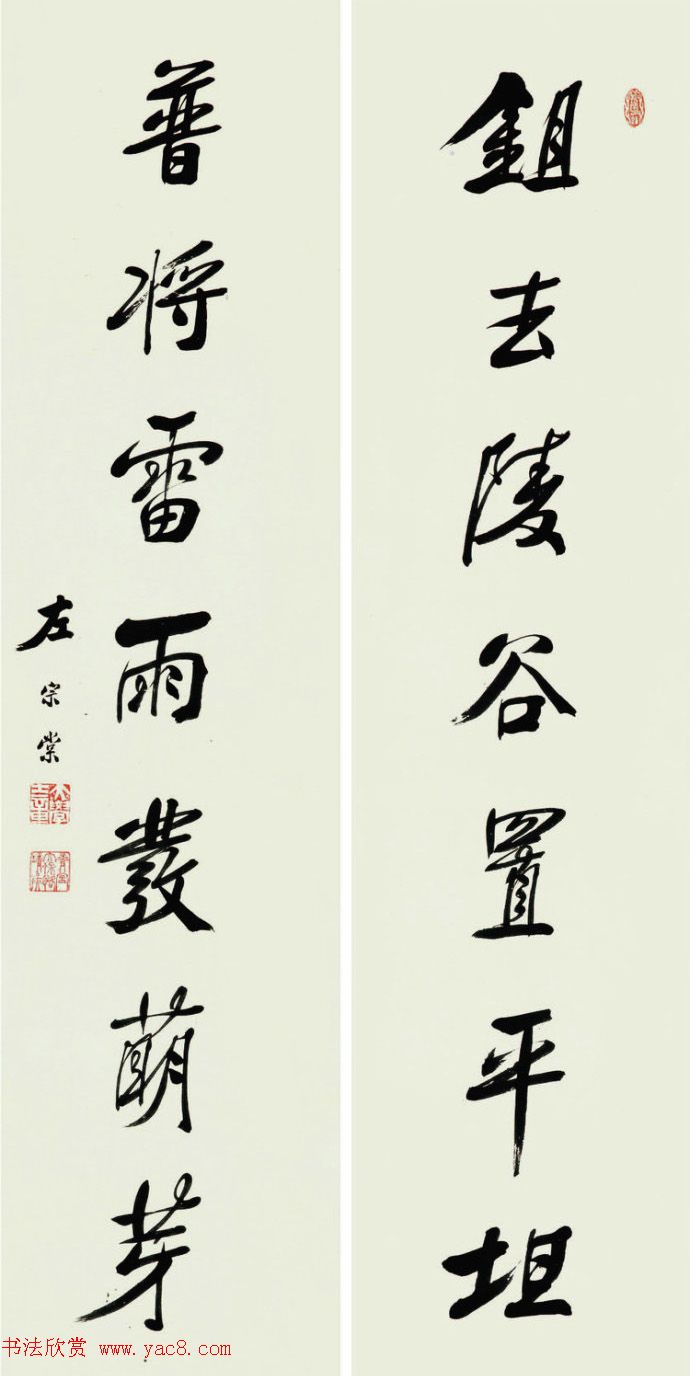 鉏去陵谷置平坦
普将雷雨發萌芽
左宗棠
书法欣赏 www.yac8.com